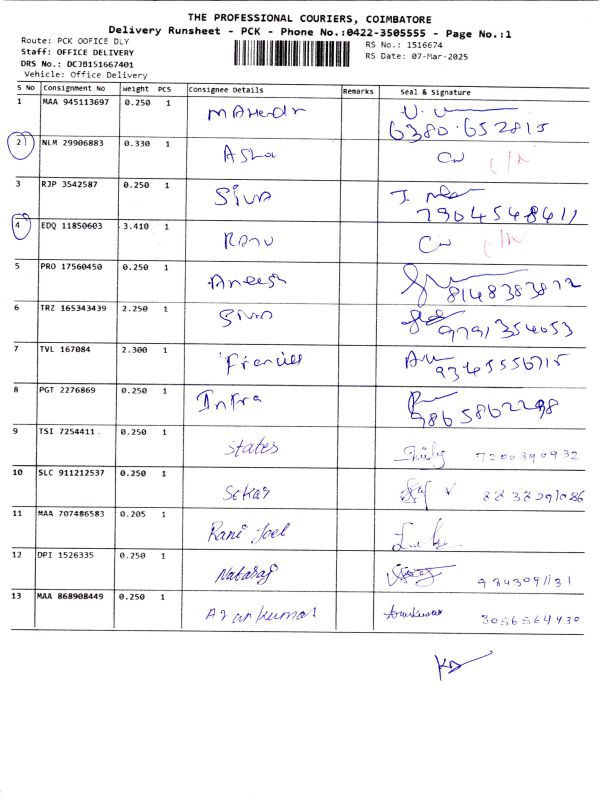 THE PROFESSIONAL COURIERS, COIMBATORE
Delivery Runsheet - PCK - Phone No.:0422-3505555 - Page No.:1
Route: PCK OOFICE DLY
RS No.: 1516674
Staff: OFFICE DELIVERY
RS Date: 07-Mar-2025
DRS No.: DCJB151667401
Vehicle: Office Delivery
S No Consignment No Weight PCS Consignee Details Remarks Seal & Signature
1 MAA 945113697 0.250 1 Mahendr
6380.652815
2 NLM 29906883 0.330 1 Asha CN C/N
3 RJP 3542587 0.250 1 Siva J.
7904548411
4 EDQ 11850603 3.410 1 Ranu CN C/N
5 PRO 17560450 0.250 1 Aneesh
8148383872
6 TRZ 165343439 2.250 1 Siva
9791354053
7 TVL 167084 2.300 1 Francies
9345556715
8 PGT 2276869 0.250 1 Infra
9865862298
9 TSI 7254411 0.250 1 States 7200390932
10 SLC 911212537 0.250 1 Sekar 8838291086
11 MAA 707486583 0.205 1 Rani Joel
12 DPI 1526335 0.250 1 Nataraj 9343091131
13 MAA 868908449 0.250 1 Arunkumar Arunkumar 8056564430